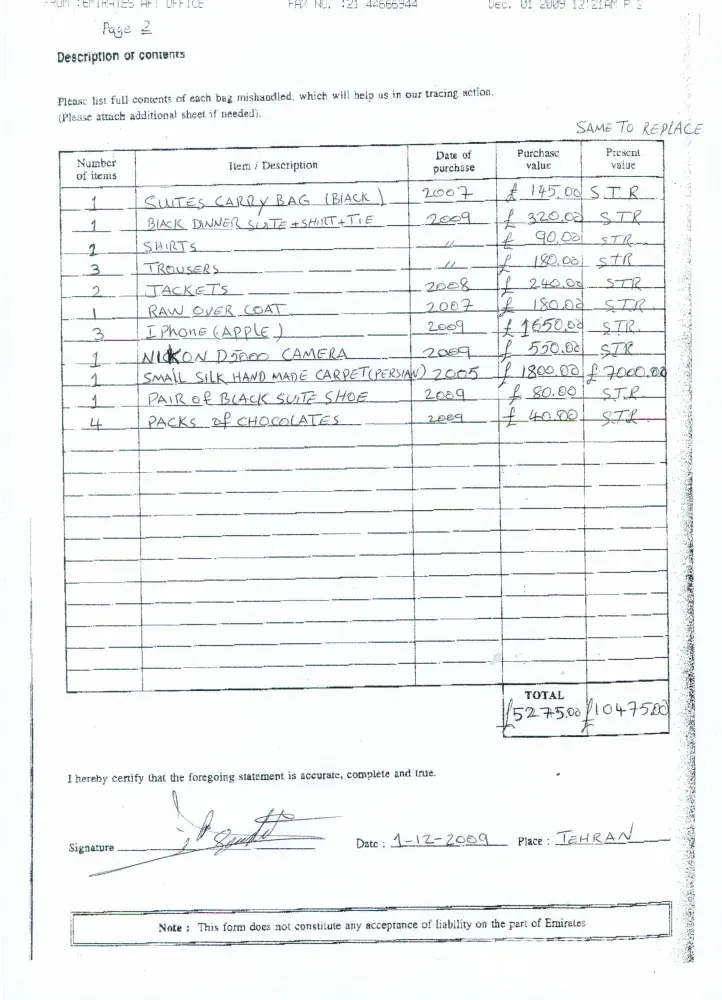 FROM :EMIRATES APT OFFICE FAX NO. :21 44666944 Dec. 01 2009 12:21AM P 2
Page 2
Description of contents
Please list full contents of each bag mishandled, which will help us in our tracing action.
(Please attach additional sheet if needed).
SAME TO REPLACE
Number of items Item / Description Date of purchase Purchase value Present value
1 SUITES CARRY BAG (BLACK) 2007 £ 145.00 S.T.R
1 BLACK DINNER SUITE + SHIRT + TIE 2009 £ 320.00 STR
2 SHIRTS " £ 90.00 STR
3 TROUSERS " £ 180.00 STR
2 JACKETS 2008 £ 240.00 STR
1 RAW OVER COAT 2007 £ 180.00 STR
3 I PhonE (APPLE) 2009 £ 1650.00 STR.
1 NICKON D5000 CAMERA 2009 £ 550.00 STR
1 SMALL SILK HAND MADE CARPET (PERSIAN) 2005 £ 1800.00 £ 7000.00
1 PAIR OF BLACK SUITE SHOE 2009 £ 80.00 S.T.R.
4 PACKS of CHOCOLATES 2009 £ 40.00 STR
TOTAL
£5275.00 £10475.00
I hereby certify that the foregoing statement is accurate, complete and true.
Signature Date : 1-12-2009 Place : TEHRAN
Note : This form does not constitute any acceptance of liability on the part of Emirates